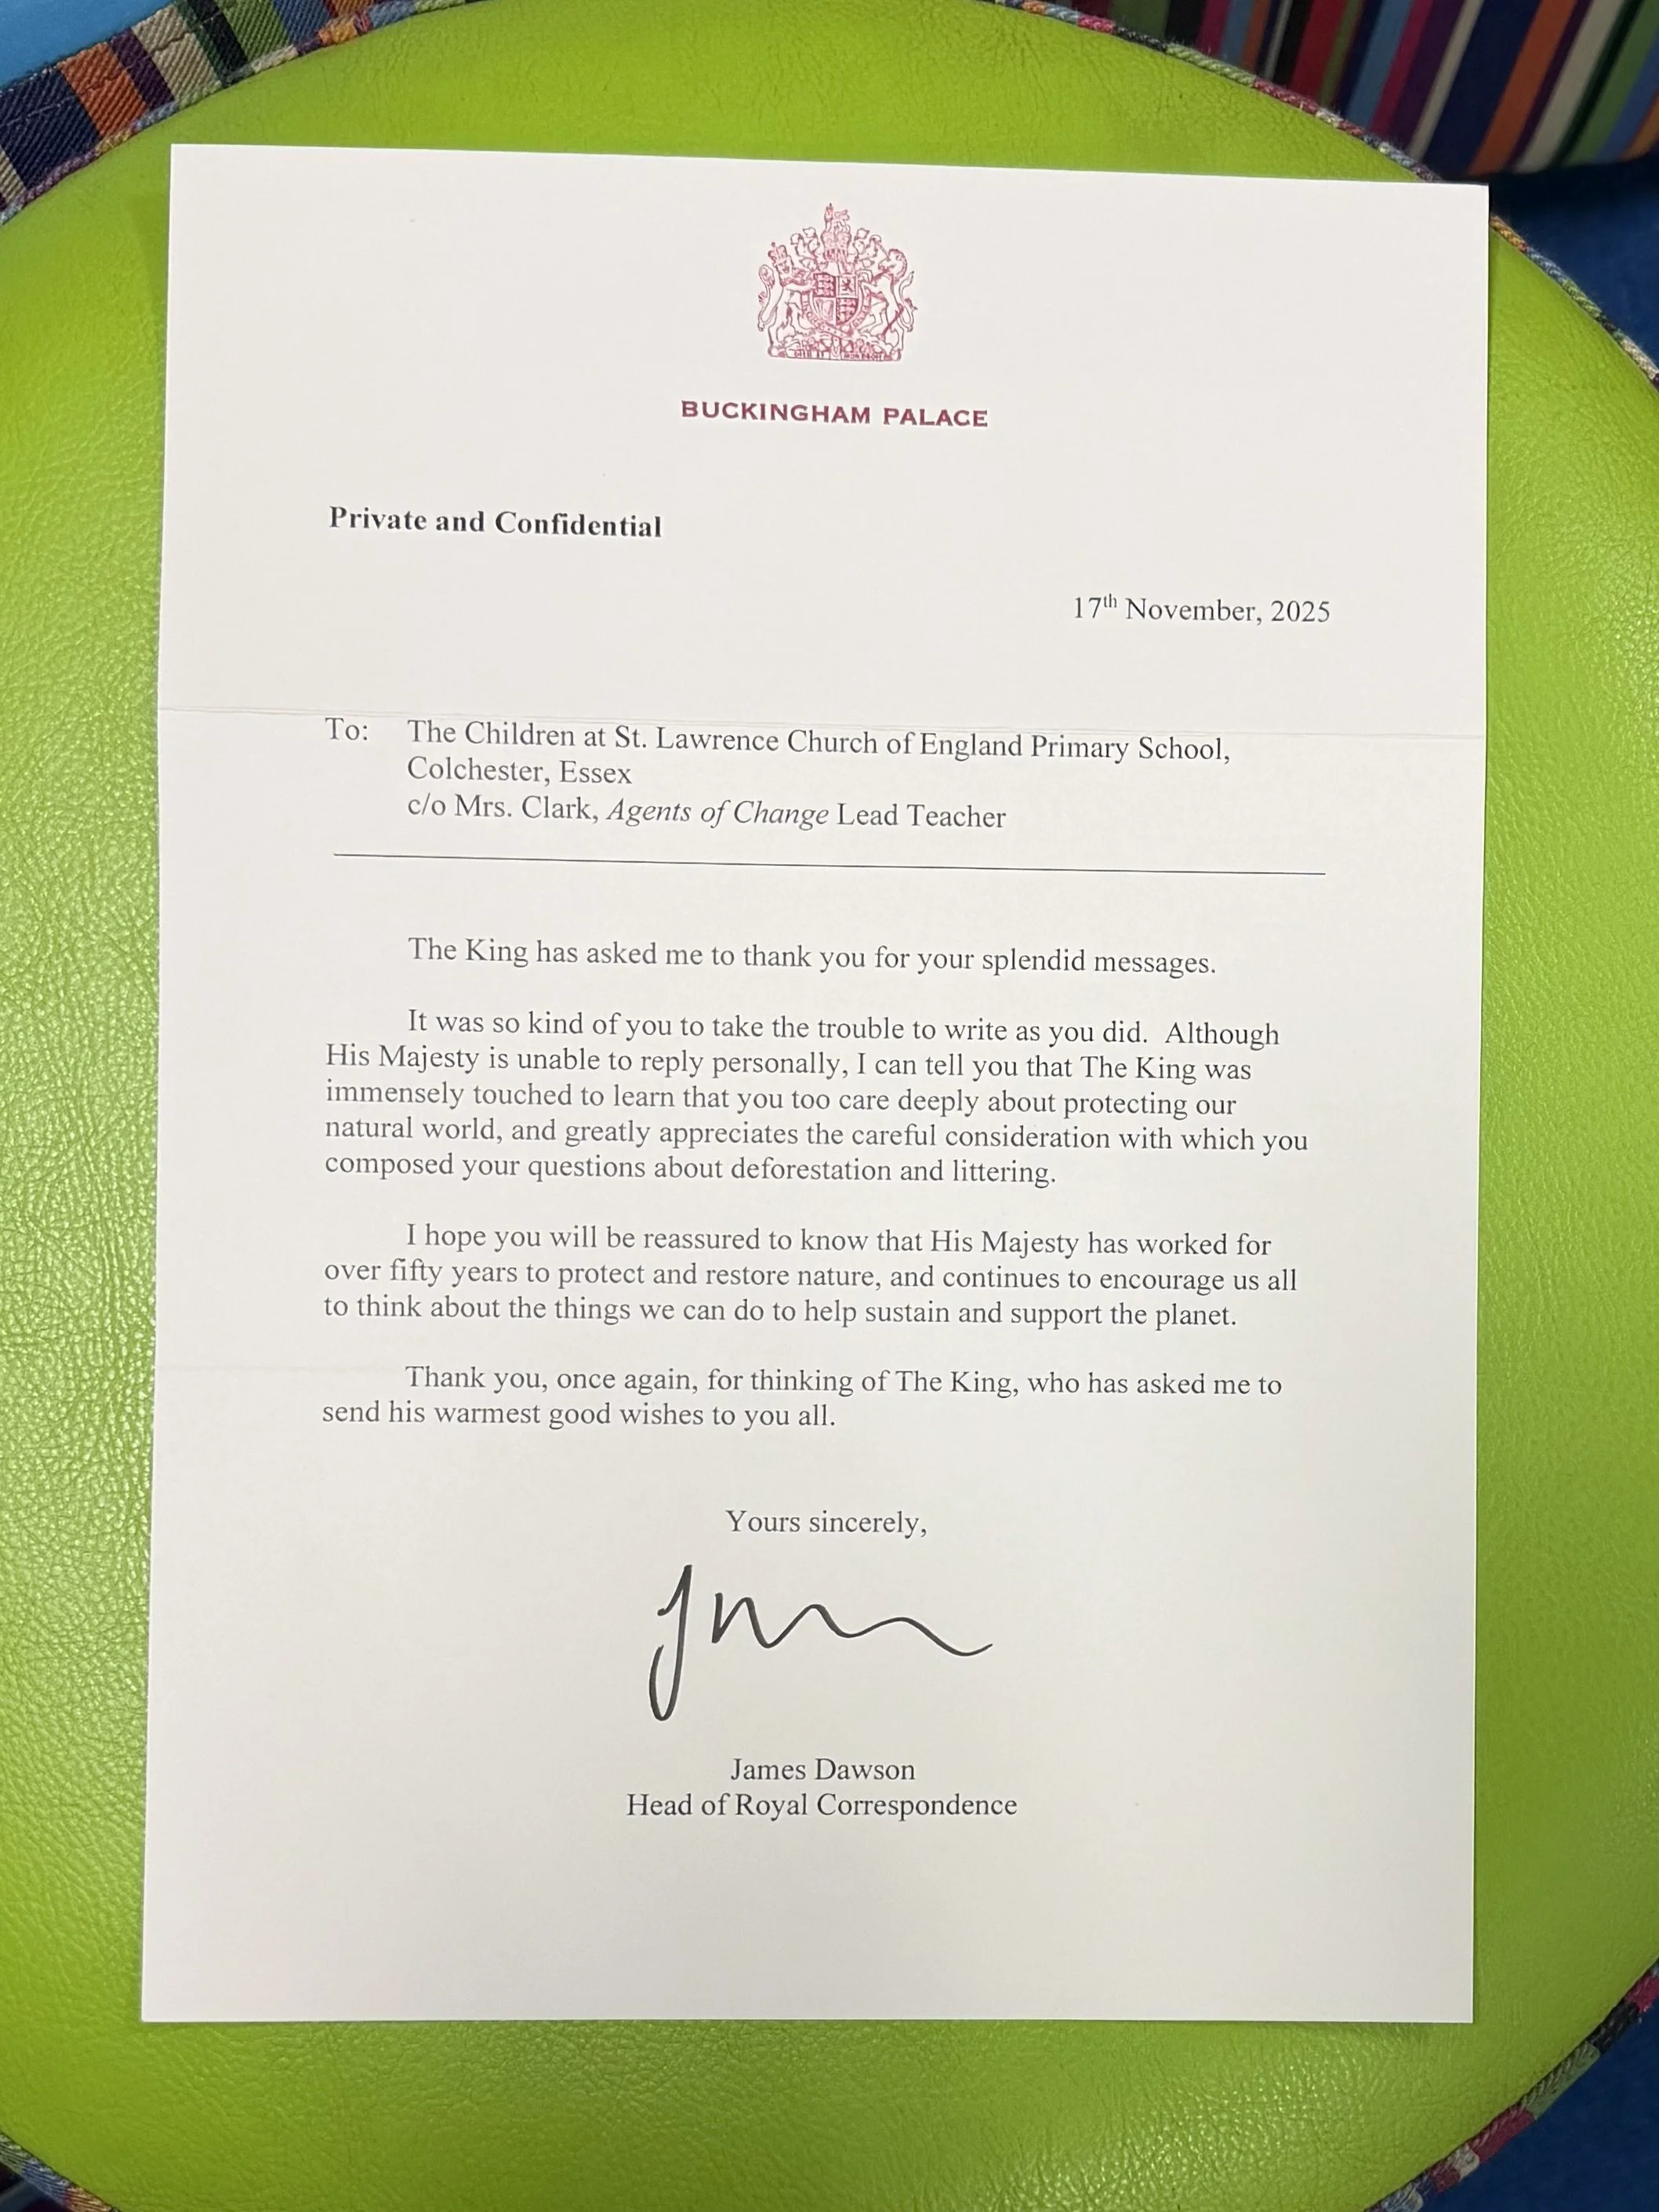 BUCKINGHAM PALACE
Private and Confidential
17th November, 2025
To: The Children at St. Lawrence Church of England Primary School,
Colchester, Essex
c/o Mrs. Clark, Agents of Change Lead Teacher
The King has asked me to thank you for your splendid messages.
It was so kind of you to take the trouble to write as you did. Although
His Majesty is unable to reply personally, I can tell you that The King was
immensely touched to learn that you too care deeply about protecting our
natural world, and greatly appreciates the careful consideration with which you
composed your questions about deforestation and littering.
I hope you will be reassured to know that His Majesty has worked for
over fifty years to protect and restore nature, and continues to encourage us all
to think about the things we can do to help sustain and support the planet.
Thank you, once again, for thinking of The King, who has asked me to
send his warmest good wishes to you all.
Yours sincerely,
James Dawson
Head of Royal Correspondence